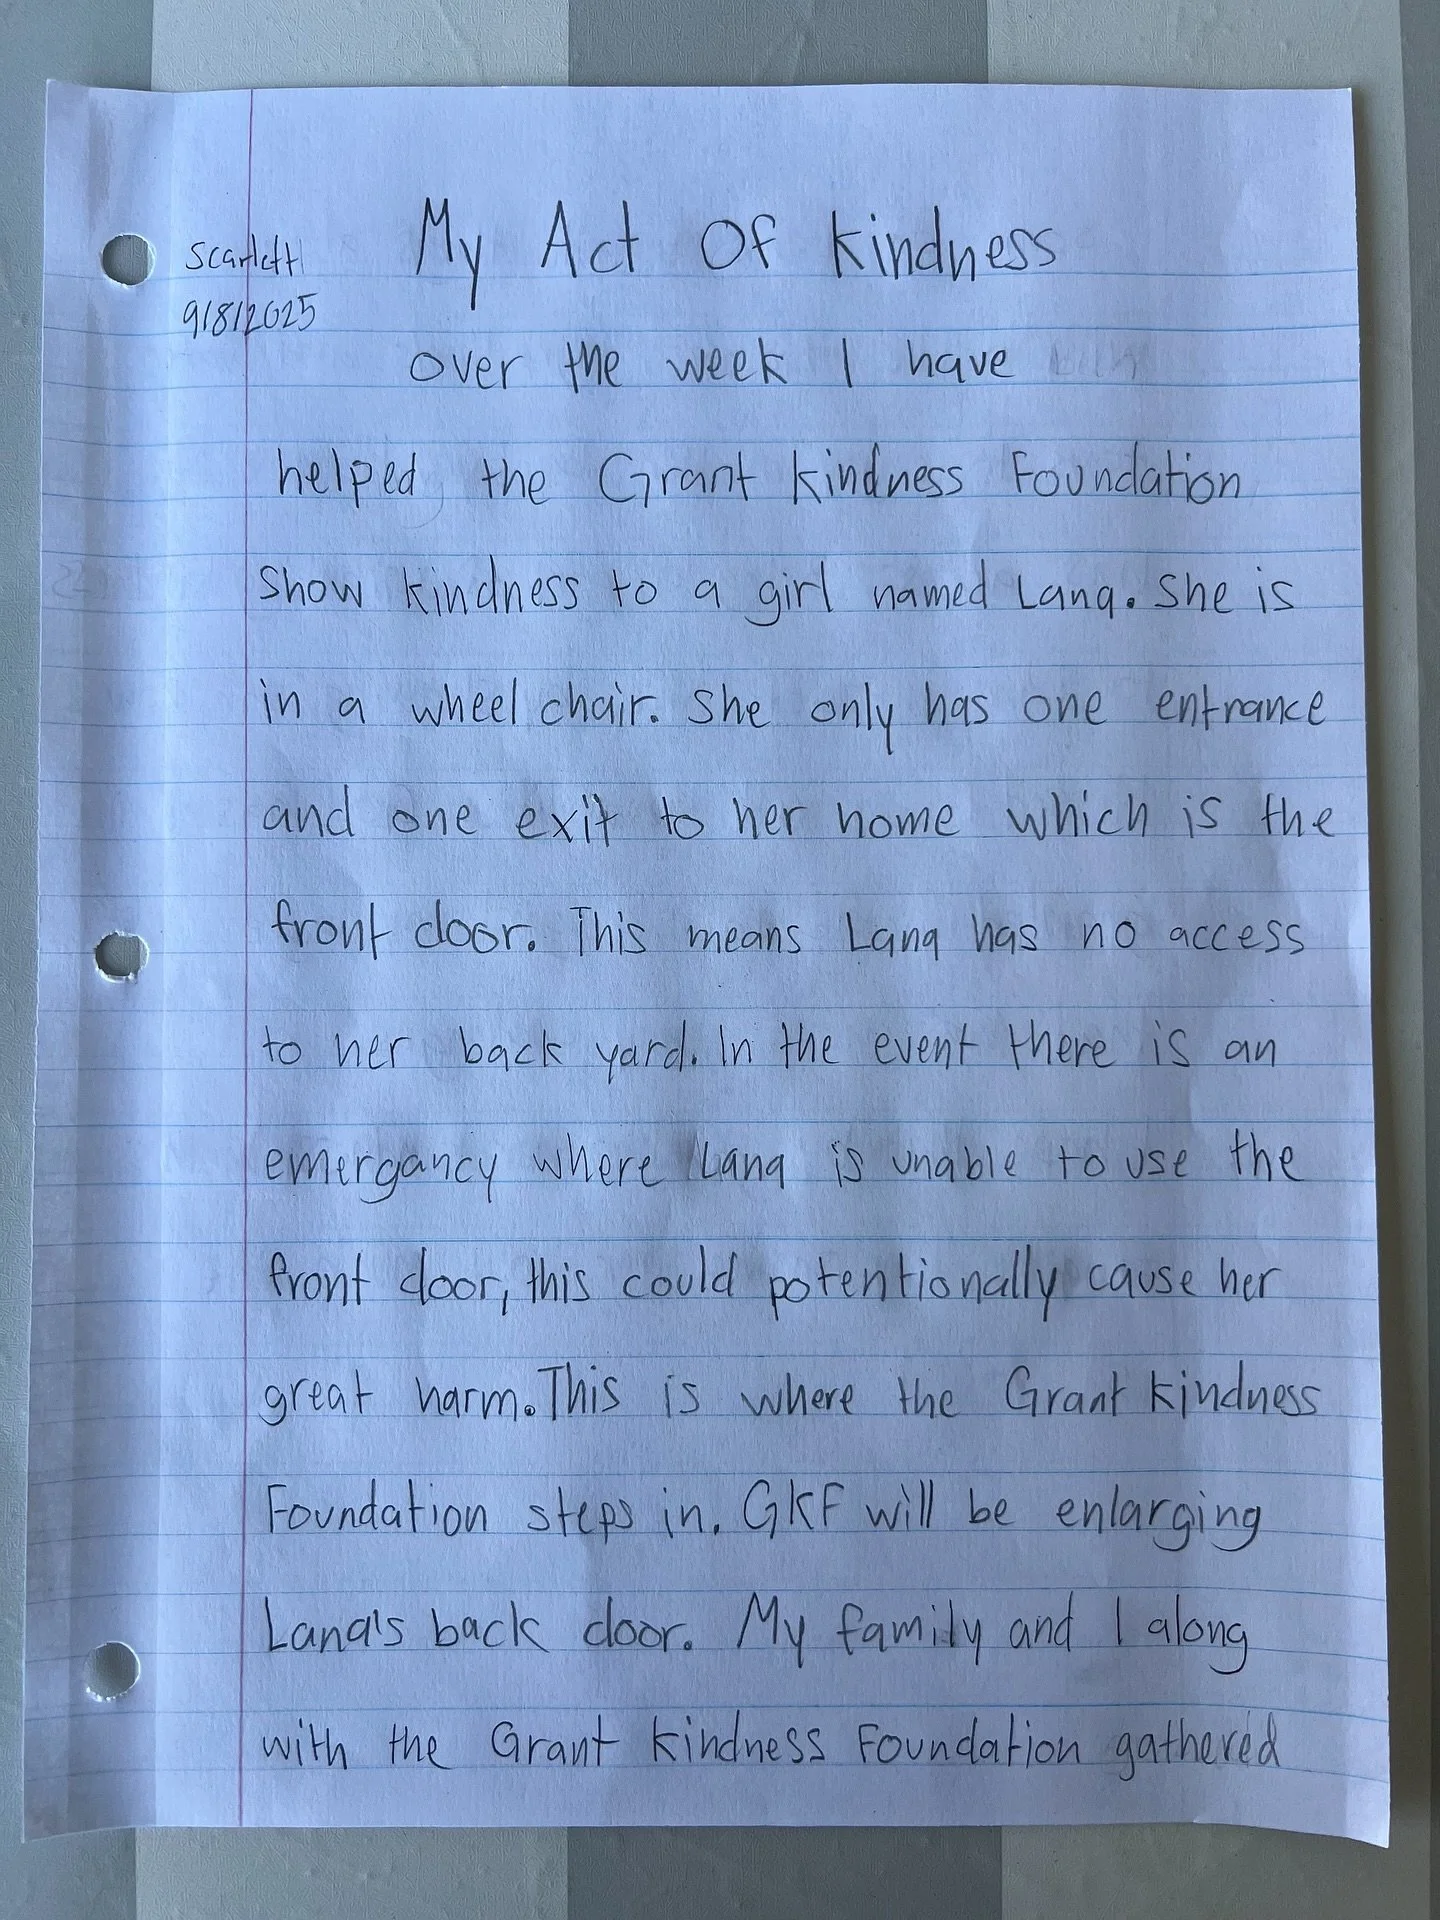 My Act Of Kindness
Scarlett
9/8/2025
over the week I have
helped the Grant Kindness Foundation
Show kindness to a girl named Lana. She is
in a wheel chair. She only has one entrance
and one exit to her home which is the
front door. This means Lana has no access
to her back yard. In the event there is an
emergancy where Lana is unable to use the
front door, this could potentionally cause her
great harm. This is where the Grant Kindness
Foundation steps in. GKF will be enlarging
Lana's back door. My family and I along
with the Grant Kindness Foundation gathered